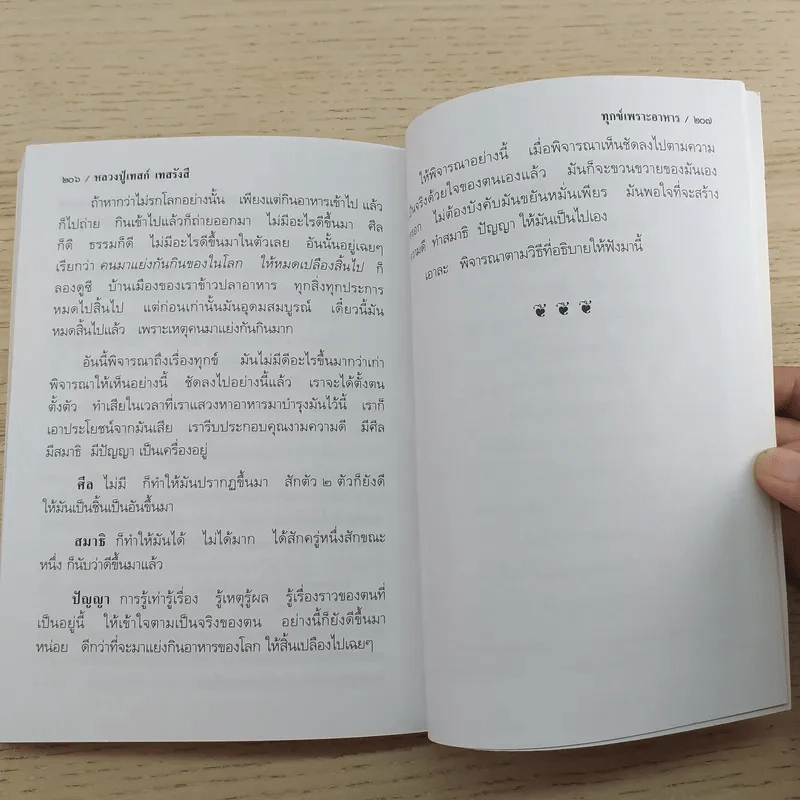 ๒๐๖ / หลวงปู่เทสก์ เทสรังสี
ถ้าหากว่าไม่รกโลกอย่างนั้น เพียงแต่กินอาหารเข้าไป แล้ว
ก็ไปถ่าย กินเข้าไปแล้วก็ถ่ายออกมา ไม่มีอะไรดีขึ้นมา ศีล
ก็ดี ธรรมก็ดี ไม่มีอะไรดีขึ้นมาในตัวเลย อันนั้นอยู่เฉยๆ
เรียกว่า คนมาแย่งกันกินของในโลก ให้หมดเปลืองสิ้นไป ก็
ลองดูซี บ้านเมืองของเราข้าวปลาอาหาร ทุกสิ่งทุกประการ
หมดไปสิ้นไป แต่ก่อนเก่านั้นมันอุดมสมบูรณ์ เดี๋ยวนี้มัน
หมดสิ้นไปแล้ว เพราะเหตุคนมาแย่งกันกินมาก
อันนี้พิจารณาถึงเรื่องทุกข์ มันไม่มีดีอะไรขึ้นมากว่าเก่า
พิจารณาให้เห็นอย่างนี้ ชัดลงไปอย่างนี้แล้ว เราจะได้ตั้งตน
ตั้งตัว ทำเสียในเวลาที่เราแสวงหาอาหารมาบำรุงมันไว้นี้ เราก็
เอาประโยชน์จากมันเสีย เรารีบประกอบคุณงามความดี มีศีล
มีสมาธิ มีปัญญา เป็นเครื่องอยู่
ศีล ไม่มี ก็ทำให้มันปรากฏขึ้นมา สักตัว ๒ ตัวก็ยังดี
ให้มันเป็นชิ้นเป็นอันขึ้นมา
สมาธิ ก็ทำให้มันได้ ไม่ได้มาก ได้สักครู่หนึ่งสักขณะ
หนึ่ง ก็นับว่าดีขึ้นมาแล้ว
ปัญญา การรู้เท่ารู้เรื่อง รู้เหตุรู้ผล รู้เรื่องราวของตนที่
เป็นอยู่นี้ ให้เข้าใจตามเป็นจริงของตน อย่างนี้ก็ยังดีขึ้นมา
หน่อย ดีกว่าที่จะมาแย่งกินอาหารของโลก ให้สิ้นเปลืองไปเฉยๆ
ทุกข์เพราะอาหาร / ๒๐๗
ให้พิจารณาอย่างนี้ เมื่อพิจารณาเห็นชัดลงไปตามความ
เป็นจริงด้วยใจของตนเองแล้ว มันก็จะขวนขวายของมันเอง
หรอก ไม่ต้องบังคับมันขยันหมั่นเพียร มันพอใจที่จะสร้าง
ความดี ทำสมาธิ ปัญญา ให้มันเป็นไปเอง
เอาละ พิจารณาตามวิธีที่อธิบายให้ฟังมานี้